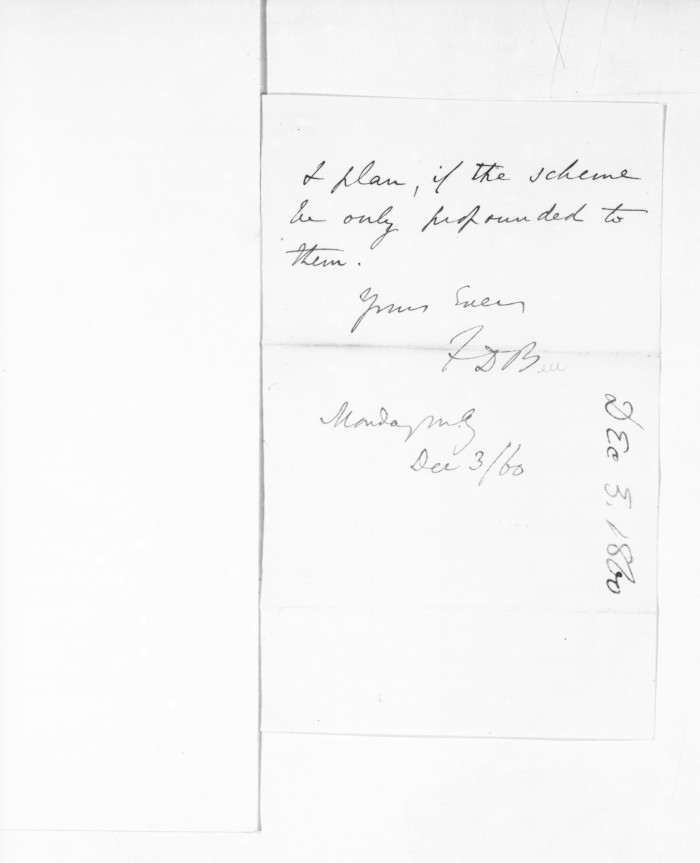 I plan, if the scheme
be only propounded to
them.
Yours Ever
F D B
Monday mg
Dec 3/60
Dec 5. 1860